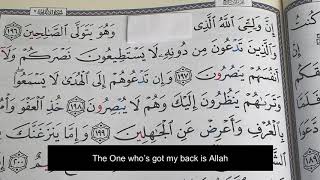 إِنَّ وَلِـِّۧيَ ٱللَّهُ ٱلَّذِى وَهُوَ يَتَوَلَّى ٱلصَّٰلِحِينَ ١٩٦
وَٱلَّذِينَ تَدْعُونَ مِن دُونِهِۦ لَا يَسْتَطِيعُونَ نَصْرَكُمْ وَلَآ
أَنفُسَهُمْ يَنصُرُونَ ١٩٧ وَإِن تَدْعُوهُمْ إِلَى ٱلْهُدَىٰ لَا يَسْمَعُوا۟
وَتَرَىٰهُمْ يَنظُرُونَ إِلَيْكَ وَهُمْ لَا يُبْصِرُونَ ١٩٨ خُذِ ٱلْعَفْوَ وَأْمُرْ
بِٱلْعُرْفِ وَأَعْرِضْ عَنِ ٱلْجَٰهِلِينَ ١٩٩ وَإِمَّا يَنزَغَنَّكَ
The One who's got my back is Allah